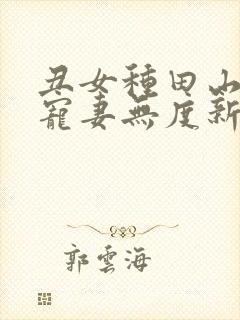 丑女種田山
寵妻無度新
郭雲海